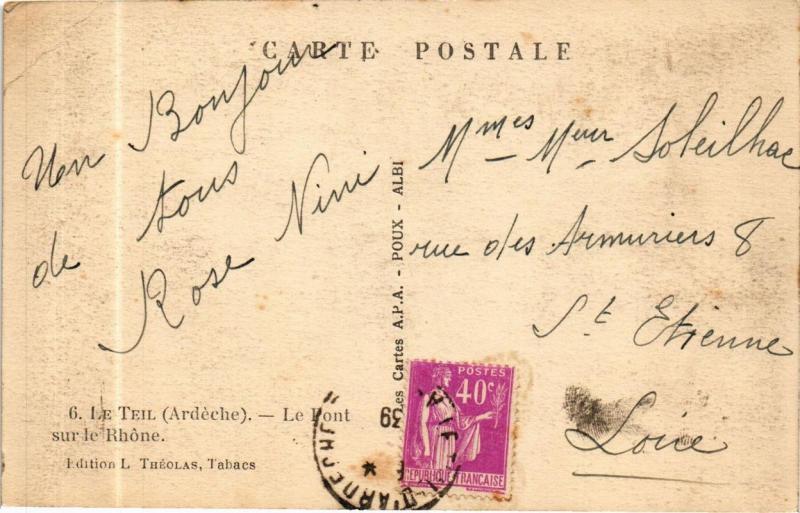 CARTE POSTALE
Un Bonjour
de tous
Rose Nini
Mmes Meur Soleilhac
rue des Armuriers 8
St Etienne
Loire
Les Cartes A.P.A. - POUX - ALBI
6. LE TEIL (Ardèche). — Le Pont
sur le Rhône.
Edition L. THÉOLAS, Tabacs
POSTES
40c
REPUBLIQUE FRANÇAISE
D'ARDECHE